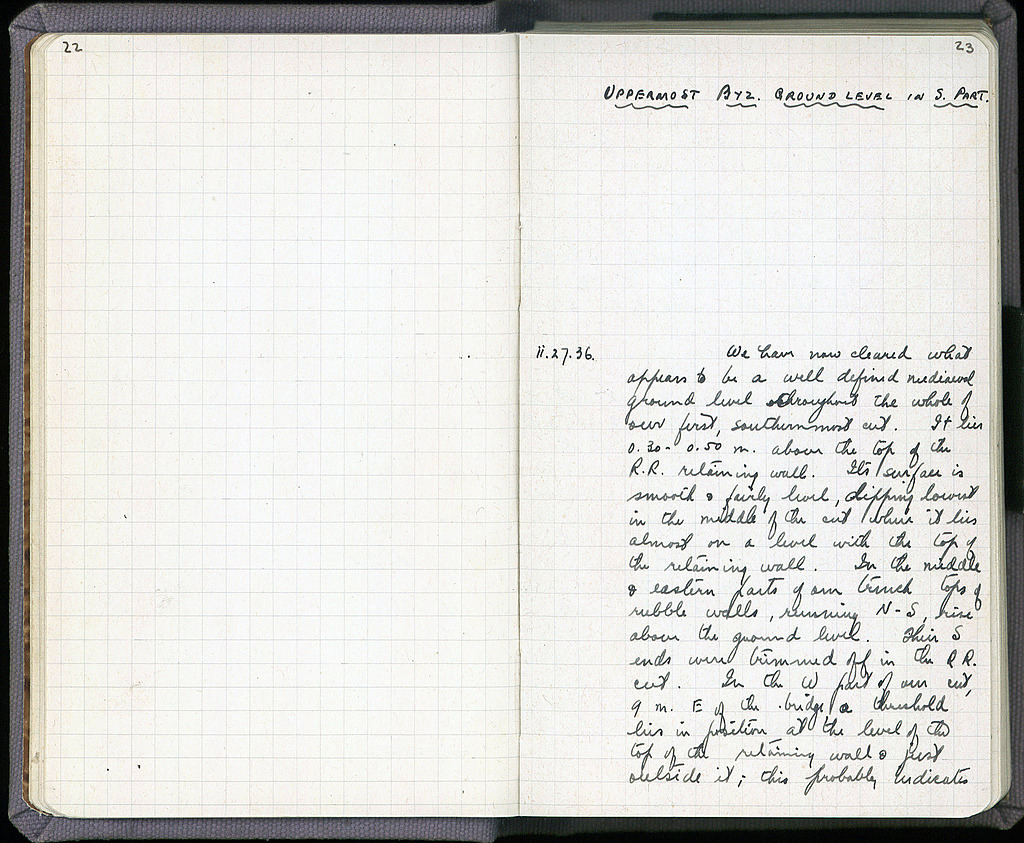 22
23
UPPERMOST BYZ. GROUND LEVEL IN S. PART.
ii.27.36. We have now cleared what
appears to be a well defined mediaeval
ground level throughout the whole of
our first, southernmost cut. It lies
0.30 - 0.50 m. above the top of the
R.R. retaining wall. Its surface is
smooth & fairly level, dipping lowest
in the middle of the cut where it lies
almost on a level with the top of
the retaining wall. In the middle
& eastern parts of our trench tops of
rubble walls, running N-S, rise
above the ground level. Their S
ends were trimmed off in the R.R.
cut. In the W part of our cut,
9 m. E of the bridge, a threshold
lies in position at the level of the
top of the retaining wall & just
outside it; this probably indicates